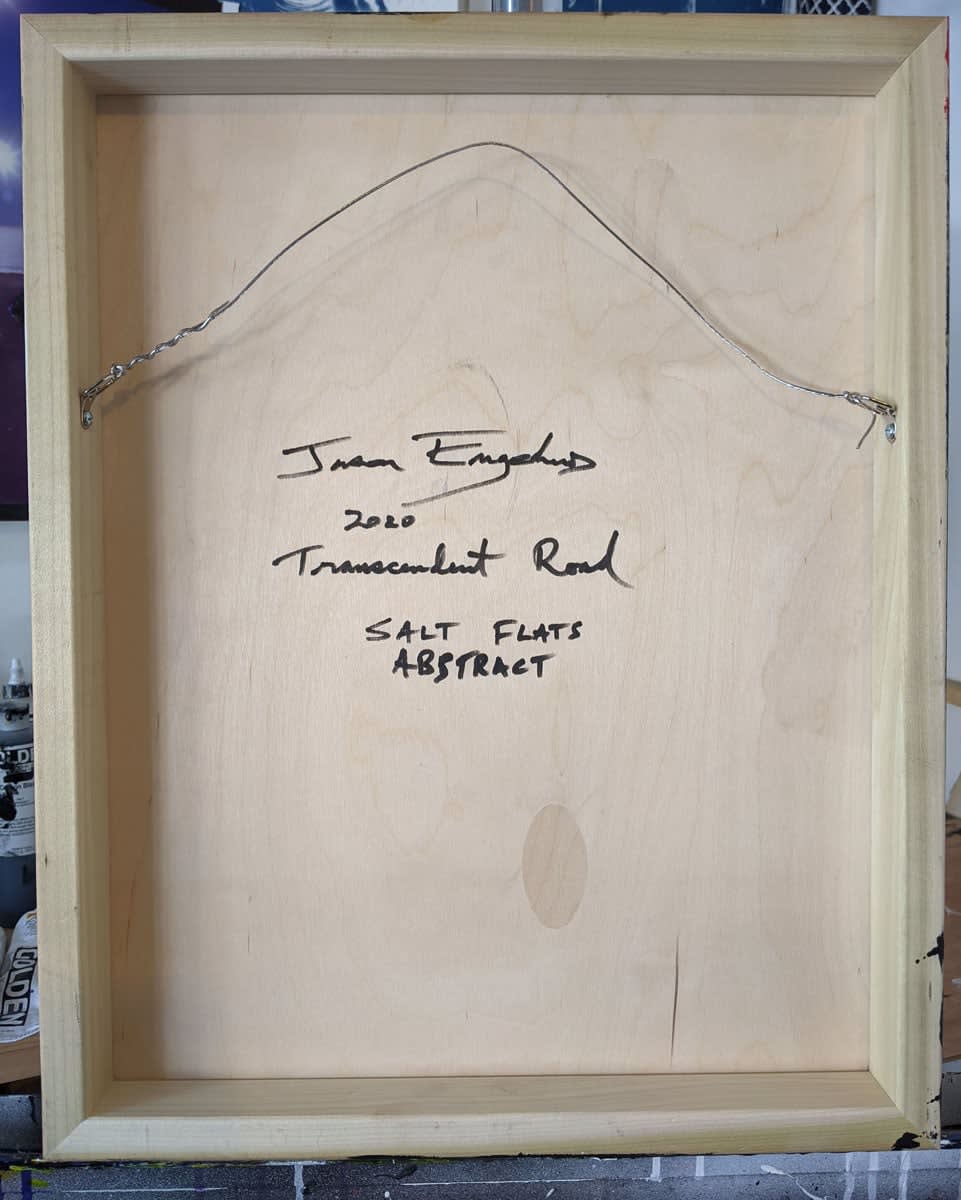 Jason Engelund
2020
Transcendent Road
SALT FLATS
ABSTRACT
GOLDEN